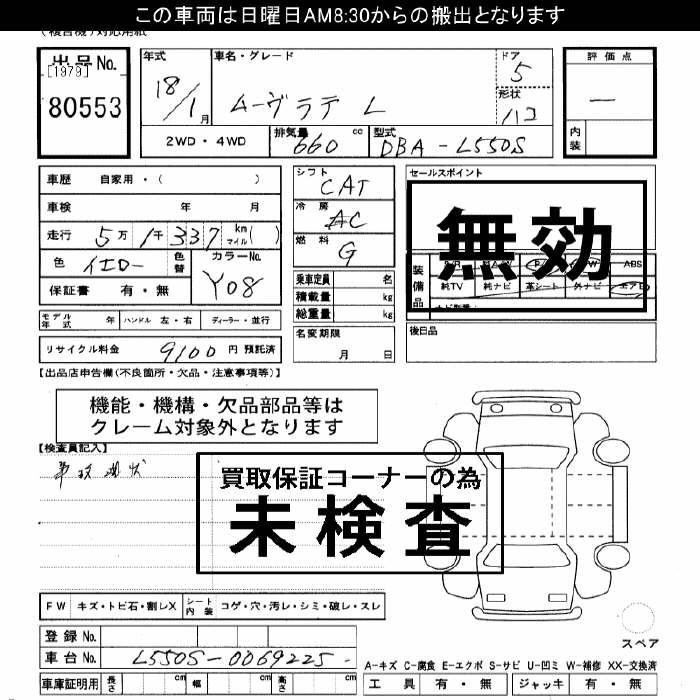 この車両は日曜日AM8:30からの搬出となります
(複合機)対応用紙
出品No.
[1979]
80553
年式
18/1月
車名・グレード
ムーヴラテ L
ドア
5
形状
ハコ
評価点
—
内装
2WD・4WD
排気量 660 cc
型式 DBA-L550S
車歴 自家用・( )
車検 年 月
走行 5万1千337 km マイル( )
色 イエロー
色替
カラーNo. Y08
保証書 有・無
シフト CAT
冷房 AC
燃料 G
乗車定員 名
積載量 kg
総重量 kg
セールスポイント
無効
装備品
ABS
純TV 純ナビ 革シート 外ナビ エアB
モデル年式 年 ハンドル 左・右 ディーラー・並行
名変期限
月 日
後日品
リサイクル料金 9100 円 預託済
【出品店申告欄(不良箇所・欠品・注意事項等)】
機能・機構・欠品部品等は
クレーム対象外となります
【検査員記入】
現状
買取保証コーナーの為
未検査
FW キズ・トビ石・割レX シート内装 コゲ・穴・汚レ・シミ・破レ・スレ
登録No.
車台No. L550S-0069225
スペア
A-キズ C-腐食 E-エクボ S-サビ U-凹ミ W-補修 XX-交換済
車庫証明用 長さ cm 幅 cm 高さ cm
工具 有・無 ジャッキ 有・無